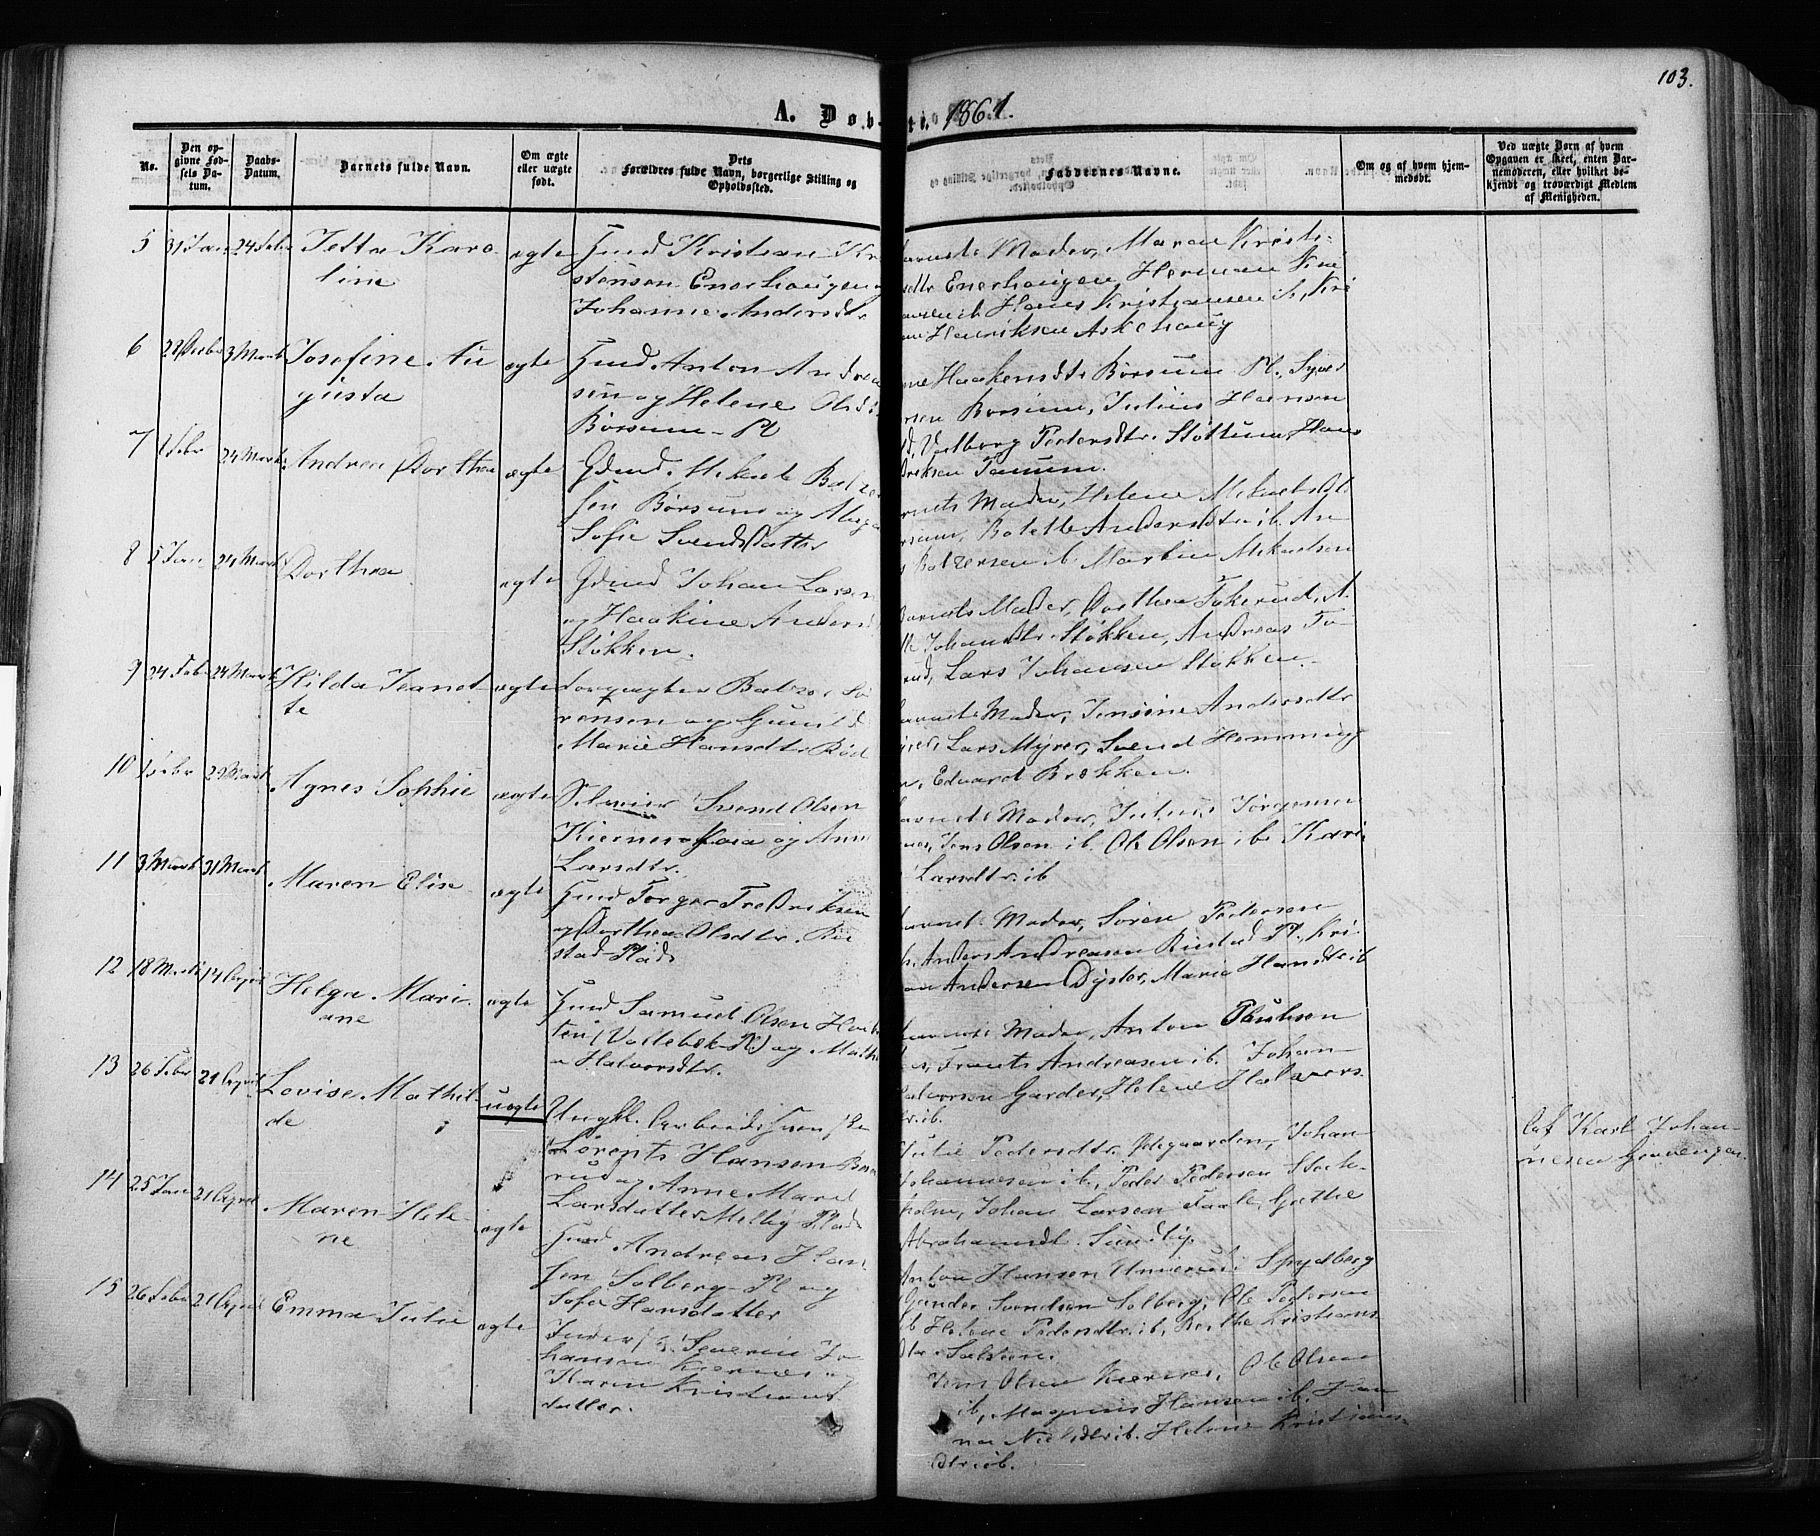 103.
A. Døbte. 1861.
No.
Den opgivne Fødsels Datum.
Daabs-Datum.
Barnets fulde Navn.
Om ægte eller uægte født.
Dets Forældres fulde Navn, borgerlige Stilling og Opholdssted.
Faddernes Navne.
Om og af hvem hjemmedøbt.
Ved uægte Børn af hvem Opgaven er skeet, enten Barnemoderen, eller hvilket bekjendt og troværdigt Medlem af Menigheden.
5 31 Jan 24 Febr Jetta Karo
line
ægte
Husmd Kristian Kri
stensen Enerhaugen og
Johanne Andersdtr
Moder, Maren Krist
Enerhaugen, Herman
ib Hans Kristiansen ib, Kri
Henriksen Askehoug
6 28 3 Marts Josefine Au
gusta
ægte
Husmd. Anton Andrea
sen og Helene Olsd
Børsum Pl
Haakensdtr Børsum Pl., Syver
Børsum, Julius Hansen
Valborg Pedersdtr. Støttum, Hans
Tanum.
7 1 Febr 24 Marts Andrea Dorthea
ægte
Gdmd. Mikael Balze
sen Børsum og
Sofie Svendsdatter
Moder, Helene Mikaelsdtr
Bolette Andersdtr ib. An
Balzersen ib. Martin Mikaelsen
8 5 Jan 24 Marts Dorthea
ægte
Gdmd Johan Larsen
og Haakine Anders
Støkken.
Barnets Moder, Dorthea Tokerud, A
Johansdtr. Støkken, Andreas To
rud, Lars Johansen Støkken.
9 24 Febr 24 Marts Hilda Jeanet
te
ægte
Forpagter Balzer Sø
rensen og Gunild
Marie Hansdtr. Bød
Moder, Jensine Andersdtr
Lars Myrer, Svend Hemming
Edvard Brekken.
10 1 Febr 29 Marts Agnes Sophie
ægte
Selveier Svend Olsen
Kiernes og Ann
Larsdtr.
Moder, Julius Jørgensen
Jens Olsen ib. Ole Olsen ib. Kari
Larsdtr. ib
11 3 Marts 31 Marts Maren Elise
ægte
Husmd Torger Fredriksen
og Dorthea Olsdtr. Ru
stad Plads
Moder, Søren Pedersen
Anders Andreasen Rustad Pl. Kri
Andersen Dyster, Maria Hansdtr ib
12 18 Marts 14 April Helga Mari
ane
ægte
Husmd Samuel Olsen
(Vollebæk Pl) og Math
a Halvorsdtr.
Moder, Anton Paulsen
Frants Andreasen ib. Johan
Halvorsen Garder, Helene Halvors
dtr ib.
13 26 Febr 21 April Lovise Mathil
de
uægte
Ungkl. Arbeidsm
Lorents Hansen
rud og Anne Marie
Larsdatter Melby Plads
Julie Pedersdtr. Ødegaarden, Johan
Johannesen ib, Peder Pedersen Stok
holm, Johan Larsen Gathe
Abrahamsdt. Sundby
Af Karl Johan
nesen
14 25 Jan 21 April Maren Hele
ne
ægte
Husmd Andreas Han
sen Solberg Pl og
Sofie Hansdatter
Anton Hansen Spydberg
Gunder Svendsen Solberg, Ole Pedersen
ib Helene Pedersdtr ib, Berthe Kristians
dtr
15 26 Febr 21 April Emma Julie
ægte
Severin Jo
hansen Kiernes og
Karen Kristians
datter.
Jens Olsen Kierner, Ole Olsen
ib, Magnus Hansen ib, Han
na Nielsdtr ib. Helene Kristians
dtr ib.